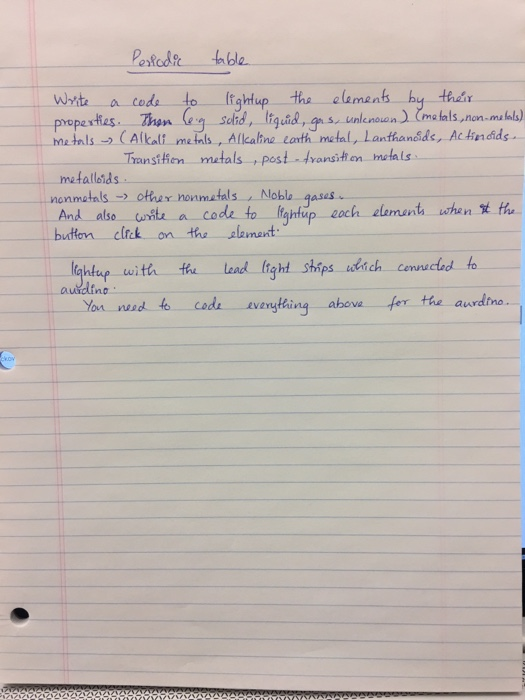 Periodic table
Write a code to lightup the elements by their
properties. Then (e.g solid, liquid, gas, unknown) (metals, non-metals)
metals → (Alkali metals, Alkaline earth metal, Lanthanoids, Actinoids.
Transition metals, post-transition metals.
metalloids.
nonmetals → other nonmetals, Noble gases.
And also write a code to lightup each elements when the
button click on the element.
lightup with the Lead light strips which connected to
aurdino.
You need to code everything above for the aurdino.